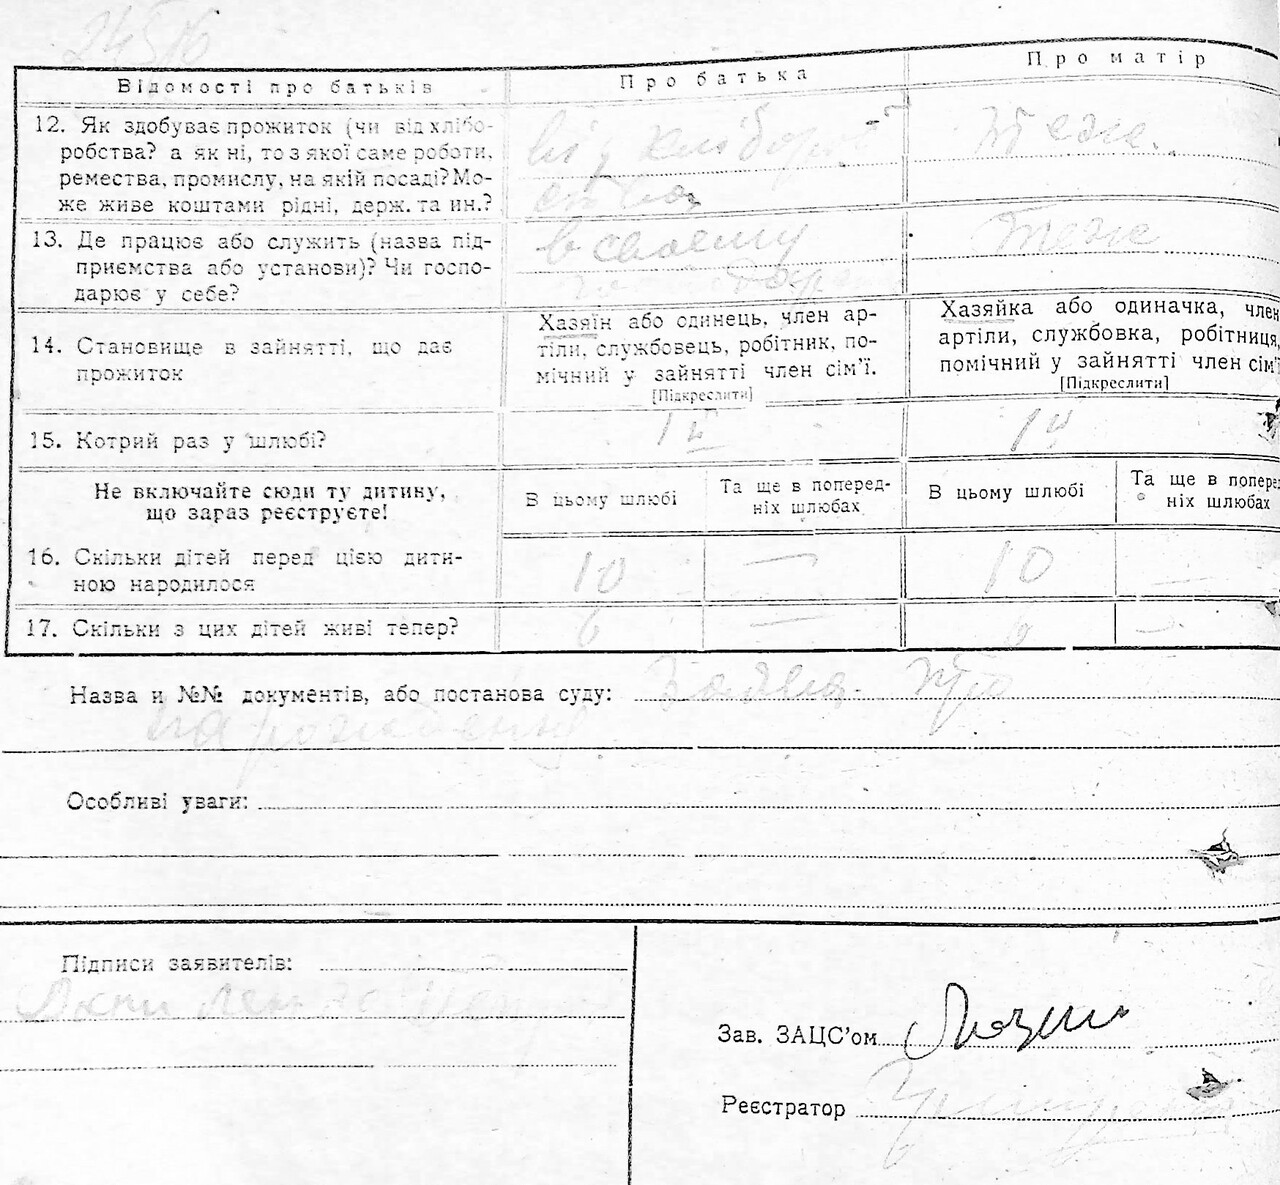 Відомості про батьків
Про батька
Про матір
12. Як здобуває прожиток (чи від хлібо-
робства? а як ні, то з якої саме роботи,
ремества, промислу, на якій посаді? Мо-
же живе коштами рідні, держ. та ин.?
від хлібороб
ства
теж
13. Де працює або служить (назва під-
приємства або установи)? Чи госпо-
дарює у себе?
в своєму
теж
14. Становище в зайнятті, що дає
прожиток
Хазяїн або одинець, член ар-
тіли, службовець, робітник, по-
мічний у зайнятті член сім'ї.
[Підкреслити]
Хазяйка або одиначка, член
артіли, службовка, робітниця,
помічний у зайнятті член сім'ї
[Підкреслити]
15. Котрий раз у шлюбі?
Не включайте сюди ту дитину,
що зараз реєструєте!
В цьому шлюбі
Та ще в поперед-
ніх шлюбах
В цьому шлюбі
Та ще в попере
ніх шлюбах
16. Скільки дітей перед цією дити-
ною народилося
10
—
10
—
17. Скільки з цих дітей живі тепер?
6
—
6
—
Назва и №№ документів, або постанова суду: Заява про
народження
Особливі уваги:
Підписи заявителів:
Зав. ЗАЦС'ом
Реєстратор